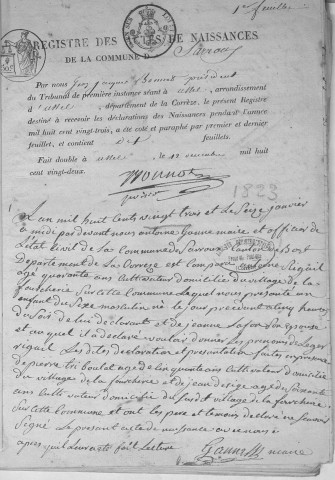 1er feuillet
REGISTRE DES ACTES DE NAISSANCES
DE LA COMMUNE D
Par nous Jean Jacques président
du Tribunal de première instance séant à ussel, arrondissement
d'ussel, département de la Corrèze, le présent Registre
destiné à recevoir les déclarations des Naissances pendant l'année
mil huit cent vingt-trois, a été coté et paraphé par premier et dernier
feuillet, et contient feuillets.
Fait double à ussel le mil huit
cent vingt-deux.
1823
L'an mil huit Cents vingt trois et le Seize janvier
a midi par devant nous antoine ganne maire et officier de
l'état Civil de la Commune de Sarroux Canton de Bort
Departement de la Correze est Comparu antoine
agé quarante ans Cultivateur domicilié au village de la
Sur cette Commune Lequel nous presente un
enfant du Sexe masculin né le jour precedent a cinq heures
de lui declarant et de jeanne Lafon Son epouse
et au quel il a declaré vouloir donner Les prenoms de Leger
Les dites declaration et presentation faites en presence
de pierre triboulat agé de cinquante ans Cultivateur domicilié
au village de la et de jean agé de Soixante
ans Cultivateur domicilié du Susdit village de la
Sur cette Commune et ont les pere et temoins declaré ne Savoir
Signé Le present acte de naissance avec nous
apres qu'il leur a eté fait Lecture
Ganne maire